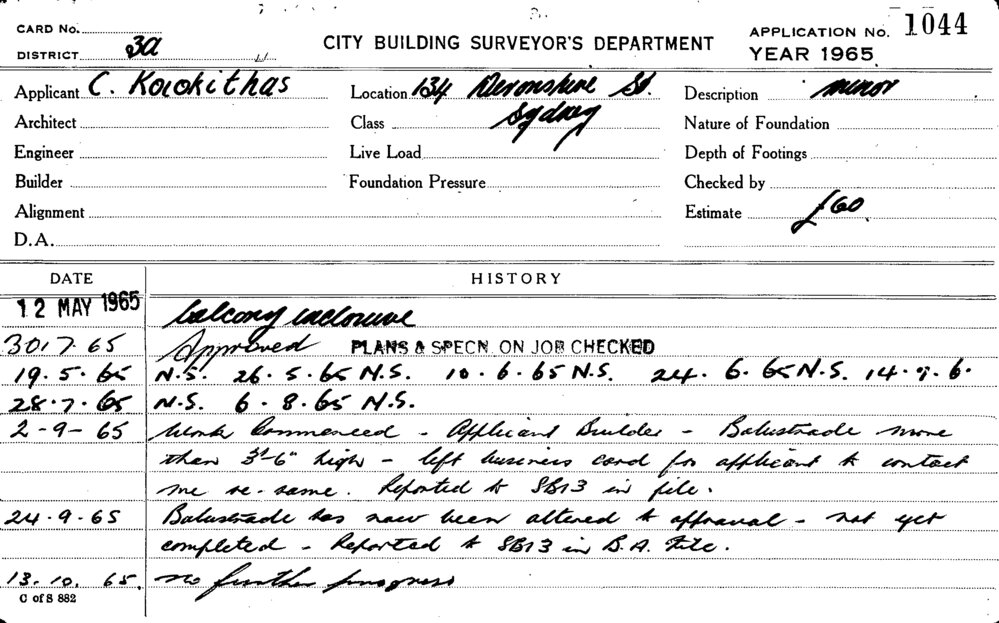 CARD No.
DISTRICT 3a
CITY BUILDING SURVEYOR'S DEPARTMENT
APPLICATION No. 1044
YEAR 1965
Applicant C. Korokithas
Location 134 Devonshire St.
Sydney
Description minor
Architect
Class
Nature of Foundation
Engineer
Live Load
Depth of Footings
Builder
Foundation Pressure
Checked by
Alignment
Estimate £60.
D.A.
DATE HISTORY
12 MAY 1965 balcony inclosure
30.7.65 Approved PLANS & SPECN. ON JOB CHECKED
19.5.65 N.S. 26.5.65 N.S. 10.6.65 N.S. 24.6.65 N.S. 14.7.6.
28.7.65 N.S. 6.8.65 N.S.
2-9-65 Work Commenced - Applicant Builder - Balustrade more
than 3'-6" high - left business card for applicant to contact
me re-same. Reported to SB13 in file.
24.9.65 Balustrade has now been altered to approval - not yet
completed - Reported to SB13 in B.A. File.
13.10.65. no further progress
C of S 882